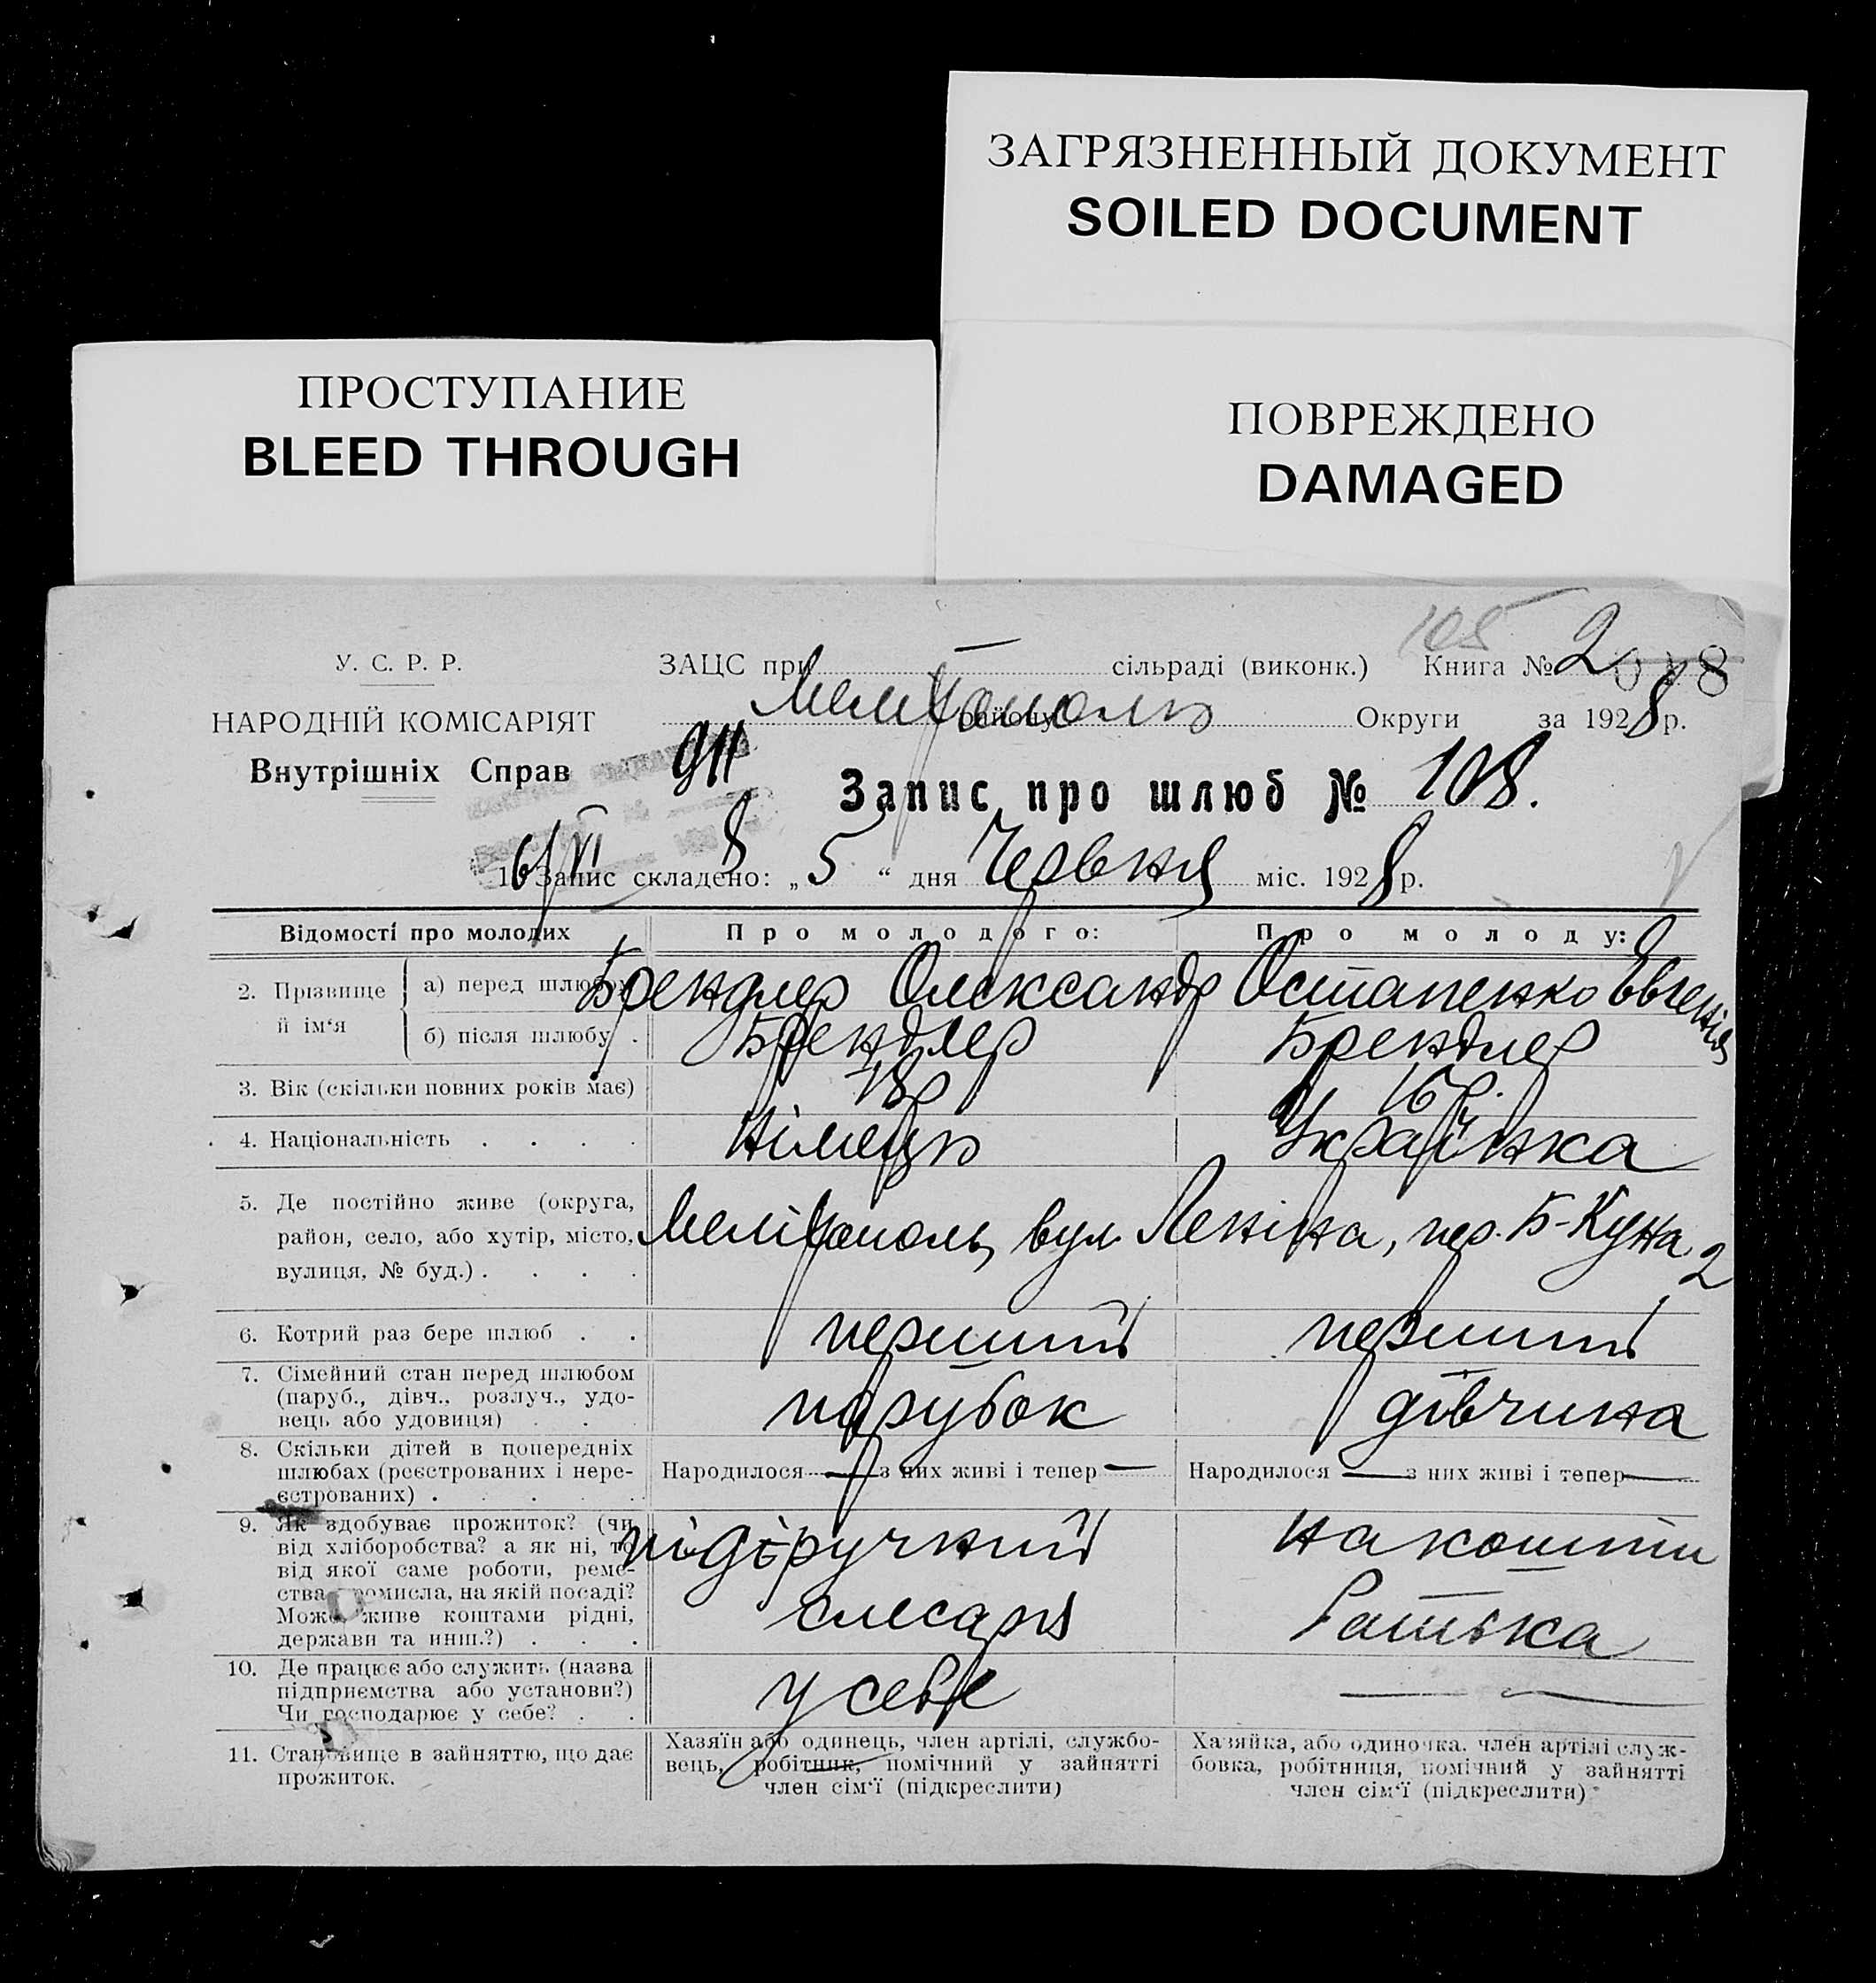 ЗАГРЯЗНЕННЫЙ ДОКУМЕНТ
SOILED DOCUMENT
ПРОСТУПАНИЕ
BLEED THROUGH
ПОВРЕЖДЕНО
DAMAGED
105
У. С. Р. Р.
НАРОДНІЙ КОМІСАРІЯТ
Внутрішніх Справ
ЗАЦС при — сільраді (виконк.) Книга № 2
Мелітополь району Округи за 1928 р.
911
Запис про шлюб № 108.
6/VI 8
1. Запис складено: „5“ дня Червня міс. 1928 р.
Відомості про молодих Про молодого: Про молоду:
2. Прізвище й ім'я а) перед шлюбом Брендлер Олександр Остапенко Євгенія
б) після шлюбу . Брендлер Брендлер
3. Вік (скільки повних років має) 18р 16р.
4. Національність . . . . Німець Українка
5. Де постійно живе (округа,
район, село, або хутір, місто, Мелітополь, вул. Леніна, пер. Б-Куна 2
вулиця, № буд.) . . . .
6. Котрий раз бере шлюб . . перший перший
7. Сімейний стан перед шлюбом
(паруб., дівч., розлуч., удо-
вець або удовиця) . . . парубок дівчина
8. Скільки дітей в попередніх
шлюбах (реєстрованих і нере-
єстрованих) . . . . .
Народилося — з них живі і тепер — Народилося — з них живі і тепер —
9. Як здобуває прожиток? (чи
від хліборобства? а як ні, то
від якої саме роботи, реме-
ства, промисла, на якій посаді?
Може живе коштами рідні,
держави та инш.?) . . .
підручний на кошти
слесаря батька
10. Де працює або служить (назва
підприємства або установи?)
Чи господарює у себе? . .
у себе —
11. Становище в зайняттю, що дає
прожиток.
Хазяїн або одинець, член артілі, службо-
вець, робітник, помічний у зайнятті
член сім'ї (підкреслити)
Хазяйка, або одиночка, член артілі служ-
бовка, робітниця, помічний у зайнятті
член сім'ї (підкреслити)